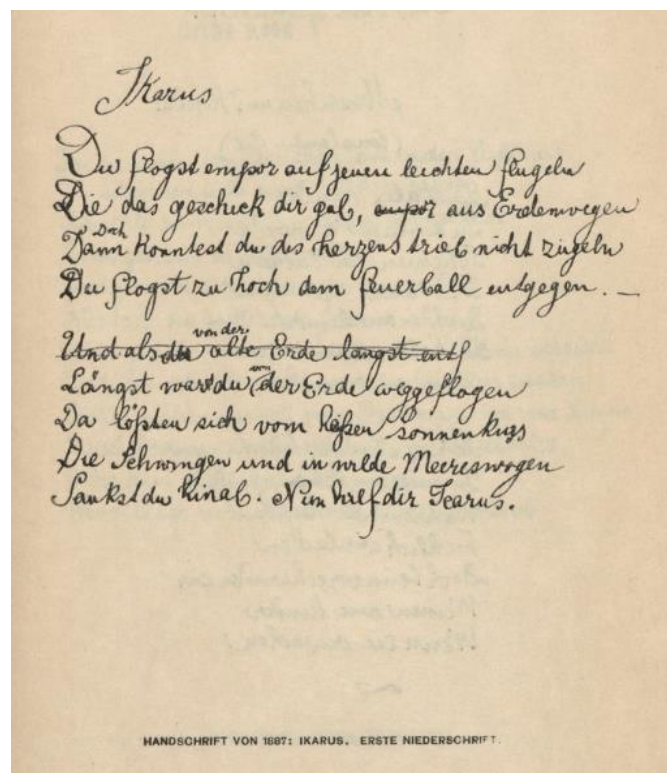 Ikarus
Du flogst empor auf jenen leichten flugeln
Die das geschick dir gab, empor aus Erdenwegen
Doch
Dann konntest du des herzens trieb nicht zügeln
Du flogst zu hoch dem feuerball entgegen. —
von der
Und als du alte Erde langst entf
Längst warst du von der Erde weggeflogen
Da lößten sich vom heißen sonnenkuss
Die Schwingen und in wilde Meereswogen
Sankst du hinab. Nun half dir Icarus.
HANDSCHRIFT VON 1887: IKARUS. ERSTE NIEDERSCHRIFT.